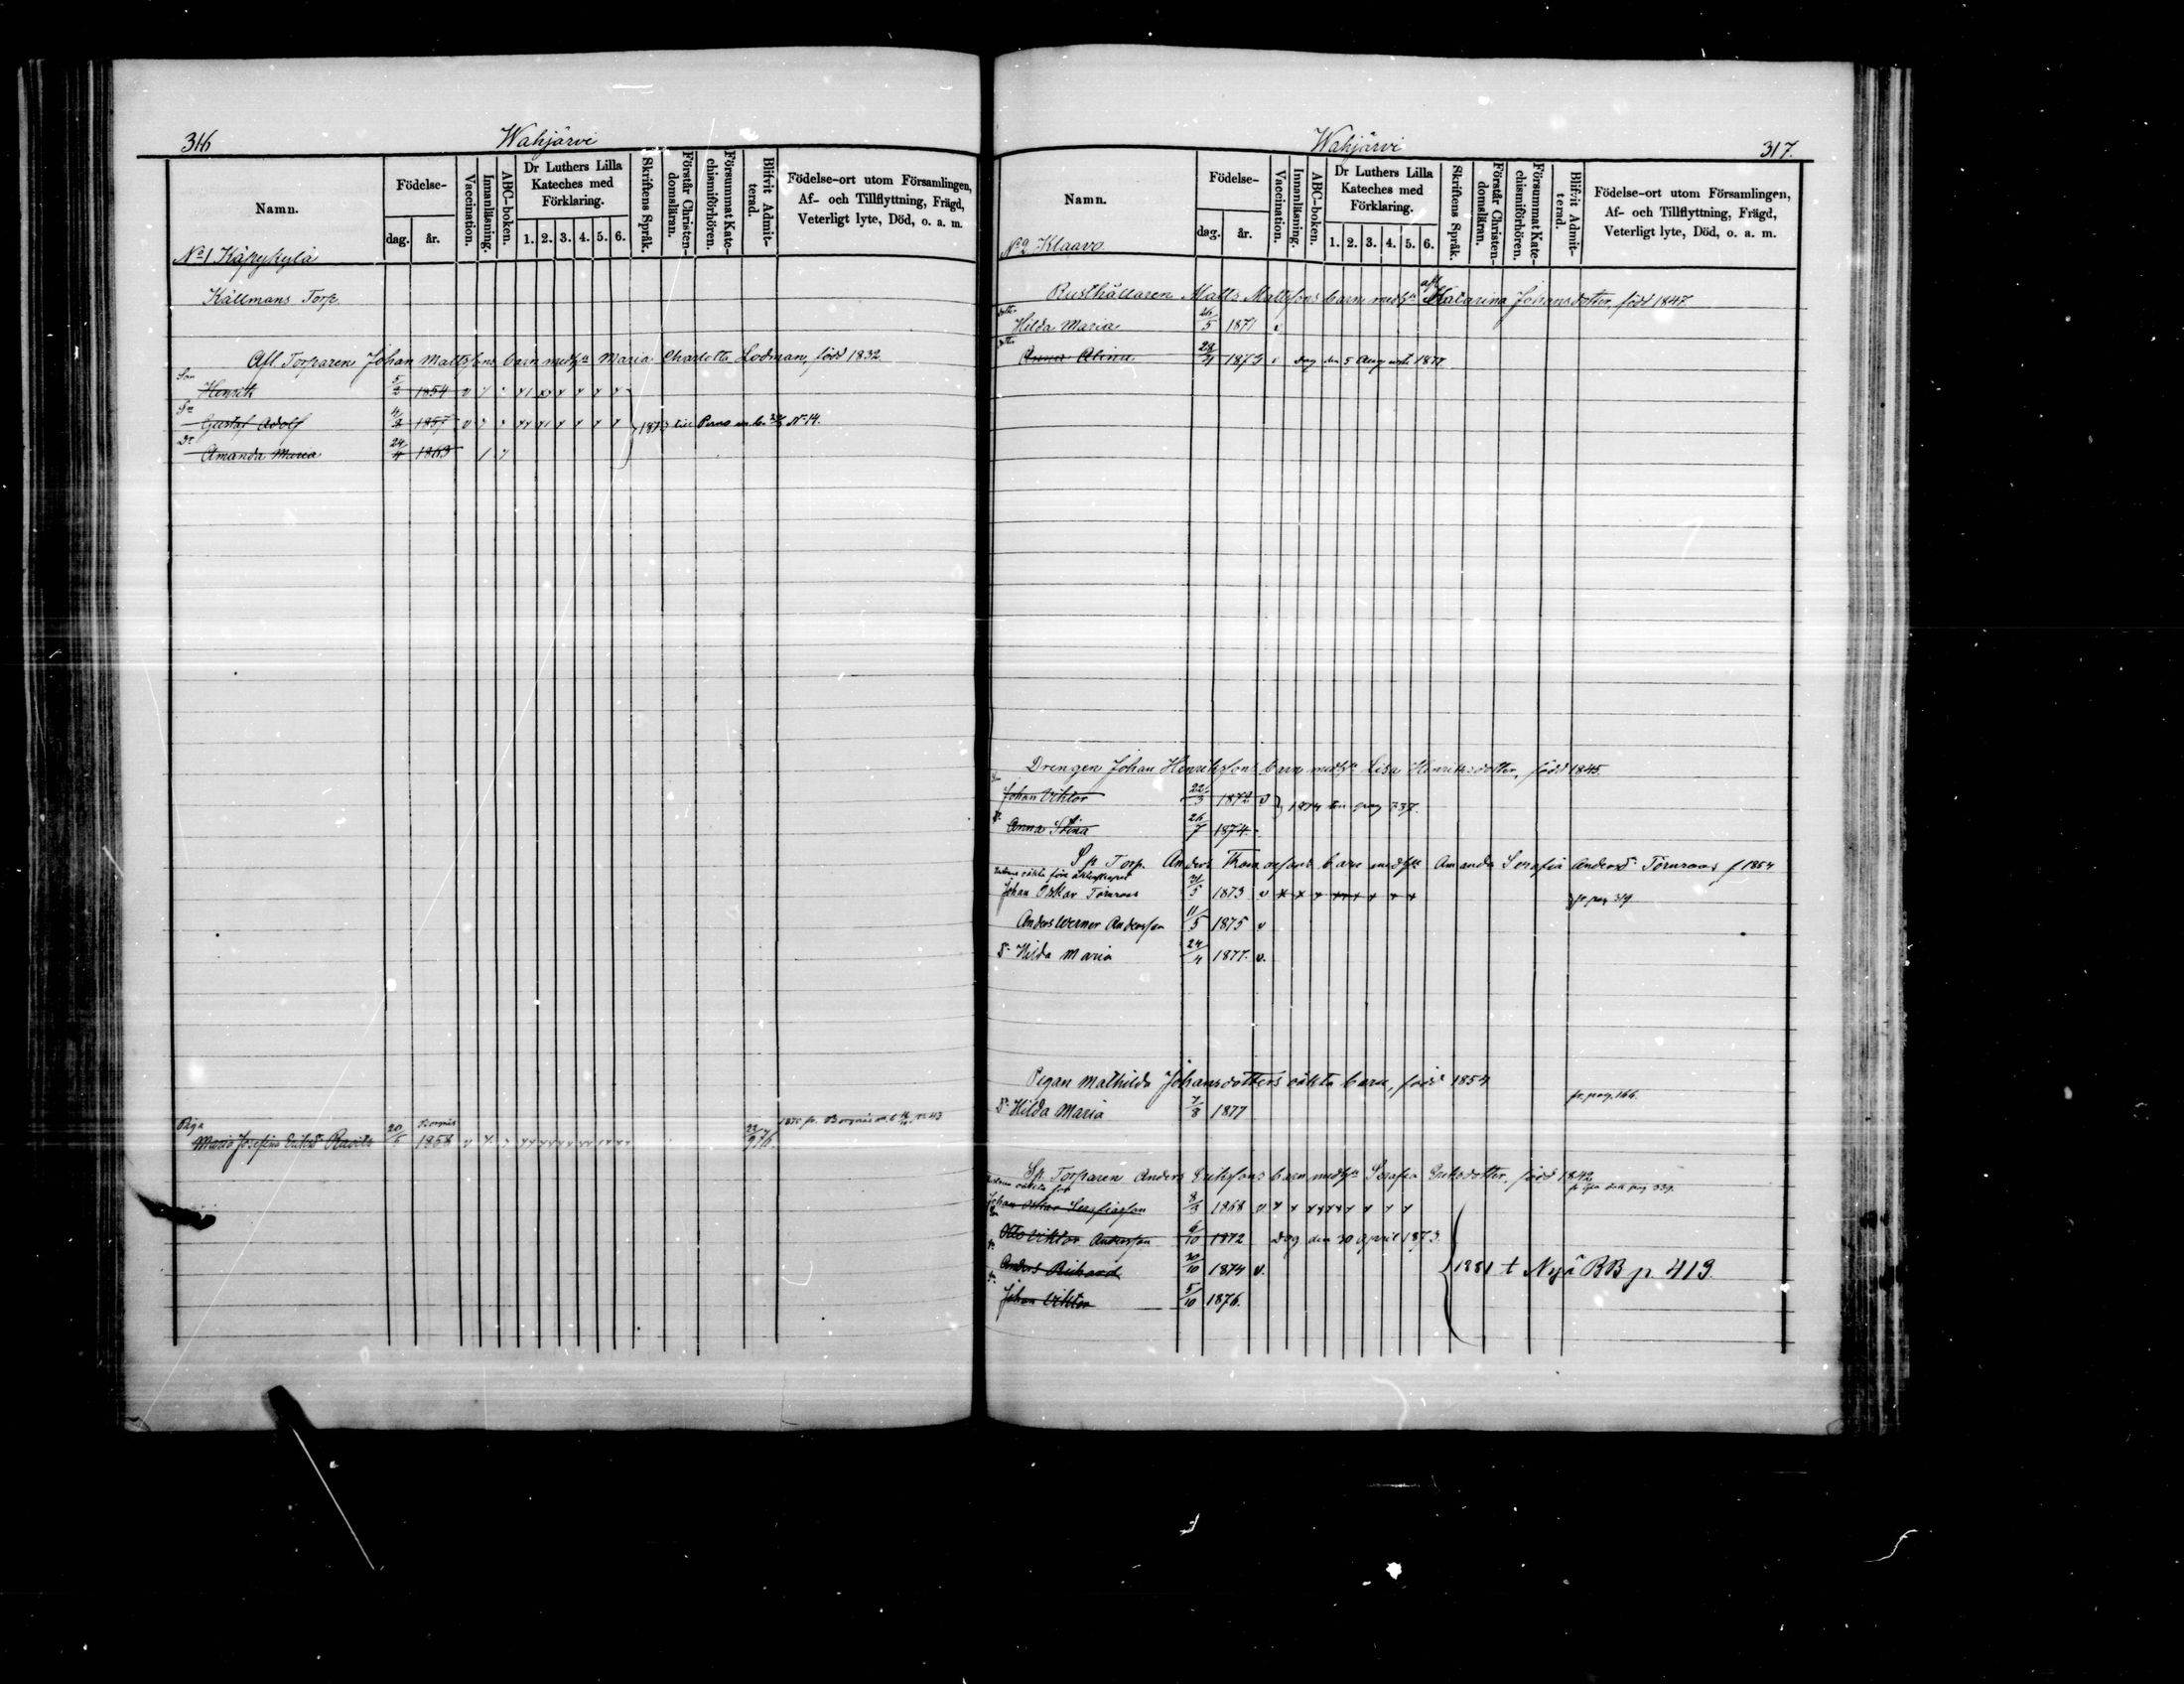 316
Wahjärvi
Namn.
Födelse-
dag.
år.
Vaccination.
Innanläsning.
ABC-boken.
Dr Luthers Lilla Kateches med Förklaring.
1. 2. 3. 4. 5. 6.
Skriftens Språk.
Förstår Christen-domsläran.
Försummat Kate-chismiförhören.
Blifvit Admit-terad.
Födelse-ort utom Församlingen,
Af- och Tillflyttning, Frägd,
Veterligt lyte, Död, o. a. m.
No 1 Käpykylä
Källmans Torp
Afl. Torparen Johan Mattssons barn med hu Maria Charlotta Lodman, född 1832
Son
Henrik 5/2 1854 v
Gustaf Adolf 4/3 1857 v
Amanda Maria 24/4 1863
till Perno No 14.
Piga
Borgnäs
Maria Josefina Eriksdr 20/5 1858 v
1875 fr. Borgnäs No 43
317.
Wahjärvi
Namn.
Födelse-
dag.
år.
Vaccination.
Innanläsning.
ABC-boken.
Dr Luthers Lilla Kateches med Förklaring.
1. 2. 3. 4. 5. 6.
Skriftens Språk.
Förstår Christen-domsläran.
Försummat Kate-chismiförhören.
Blifvit Admit-terad.
Födelse-ort utom Församlingen,
Af- och Tillflyttning, Frägd,
Veterligt lyte, Död, o. a. m.
No 2 Klaavo
Rusthållaren Matts Mattssons barn med hu afl Katarina Johansdotter, född 1847
Hilda Maria 26/5 1871 v
Anna Alina 28/11 1873 Dog den 5 Augusti 1877
Drengen Johan Henrikssons barn med hu Lisa Henriksdotter, född 1845.
Johan Viktor 22/3 1872 v
1874 till pag 337.
Anna Stina 26/7 1874
Sp Torp. Anders barn med hu Amanda Serafia Andersdr Törnroos f 1854
Johan Oskar Törnroos 31/5 1873 v
fr. pag 319.
Anders Werner Andersson 11/5 1875 v
Dr Hilda Maria 24/4 1877. v.
Pigan Mathilda Johansdotters oäkta barn, född 1854
fr. pag. 166.
Dr Hilda Maria 7/8 1877
Sp. Torparen Anders Erikssons barn med hu Serafia Eriksdotter, född 1842
Johan Oskar Serafiasson 8/3 1868 v
Otto Viktor Andersson 6/10 1872 Dog den 30 April 1873
Anders Richard 30/10 1874 v.
1881 t Nya BB p. 419.
Johan Viktor 5/10 1876.